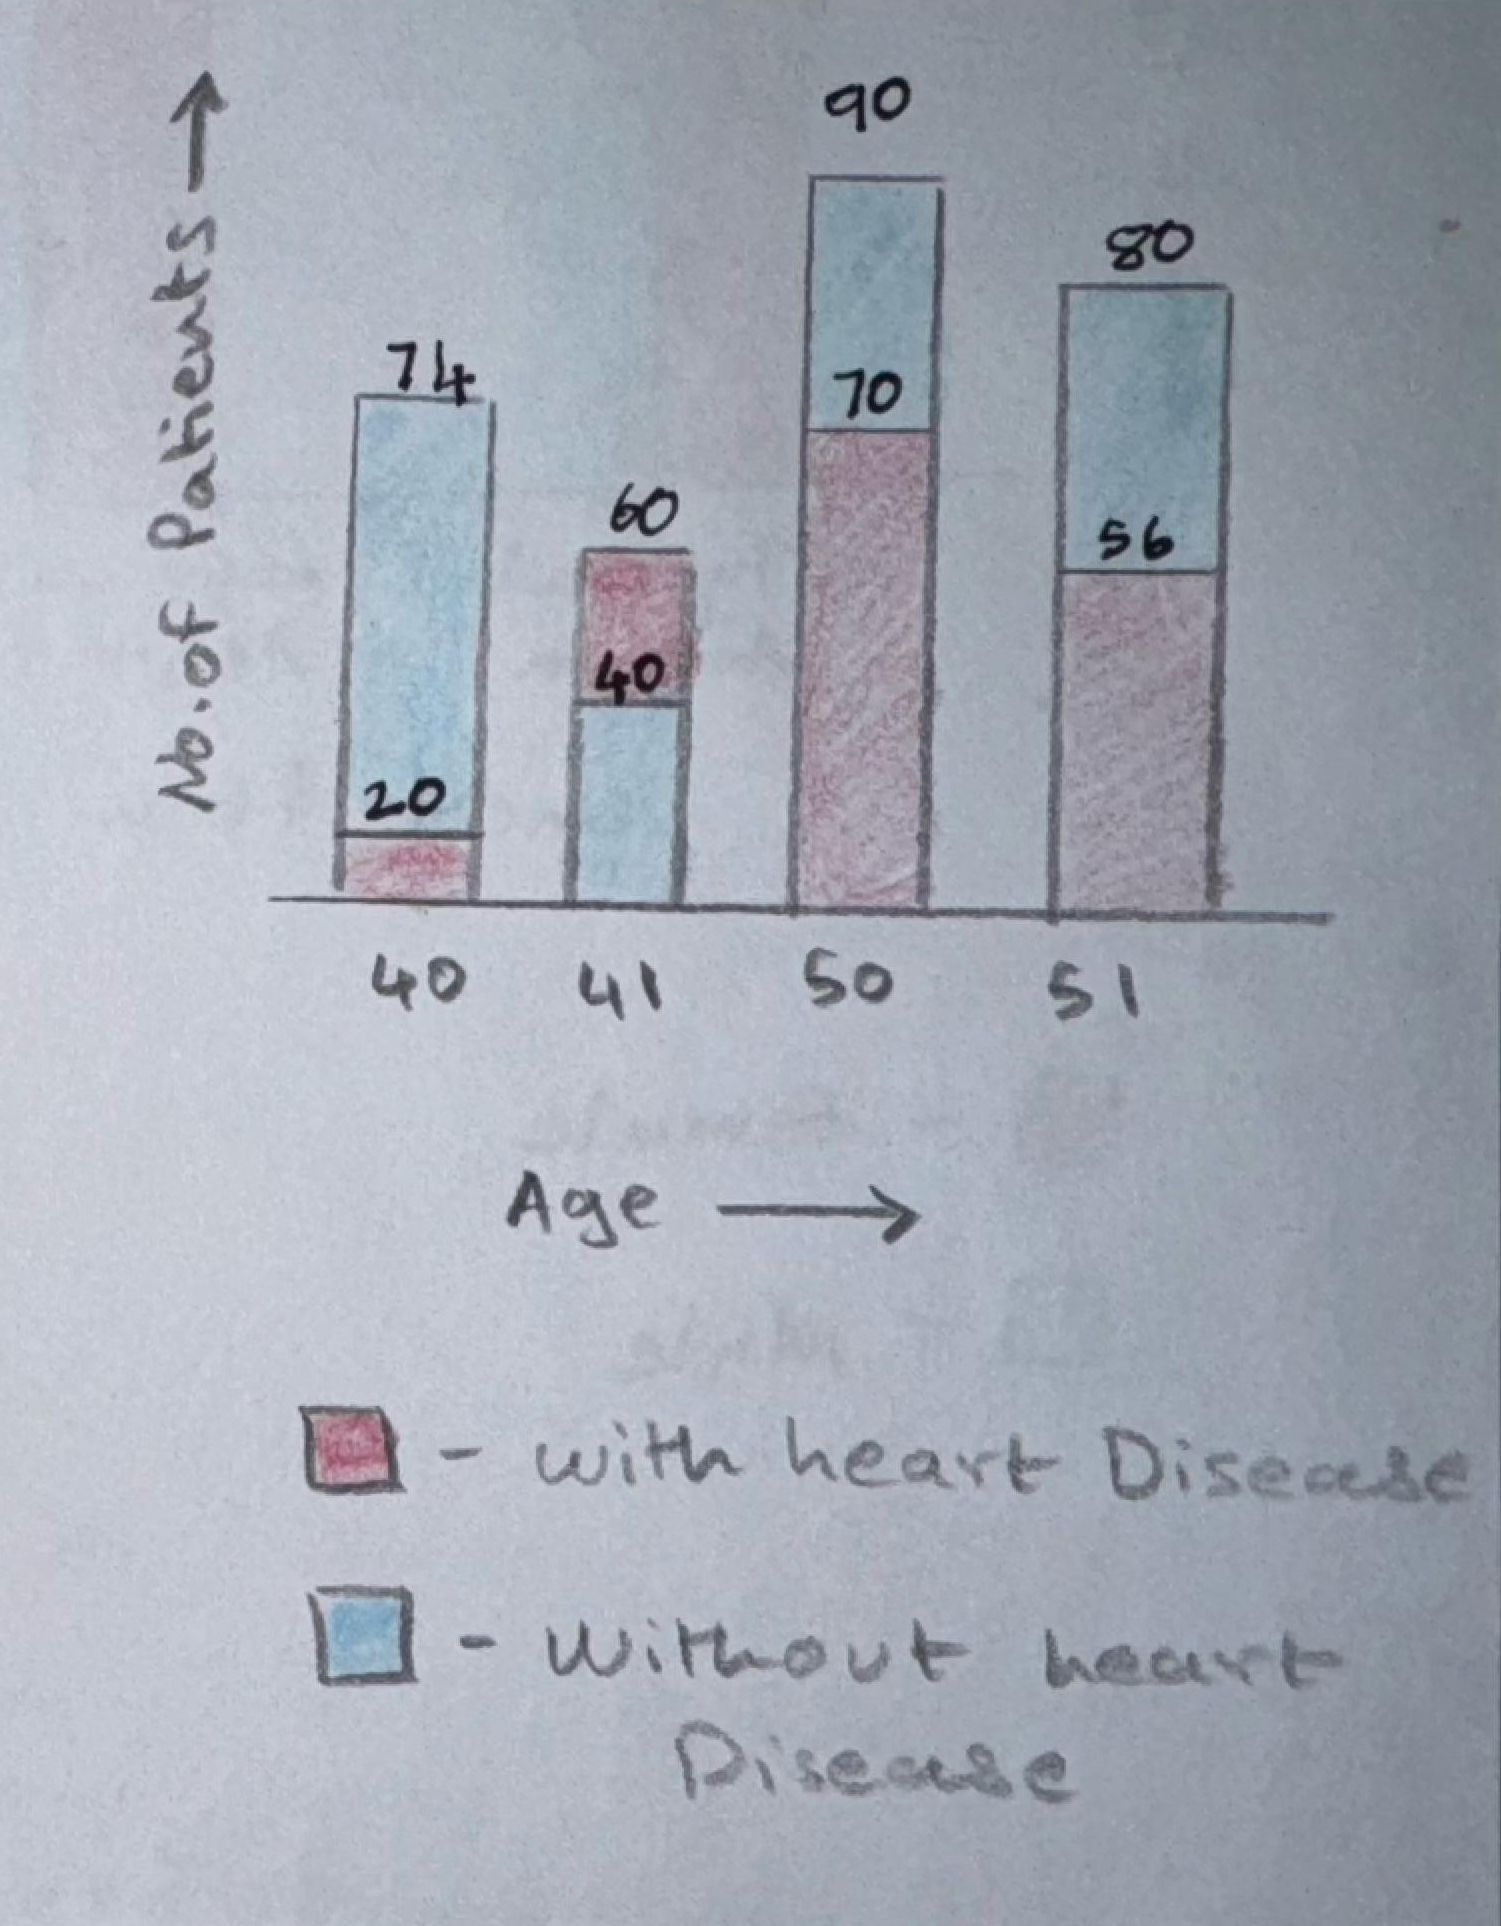 No. of Patients →
90
80
74
70
60
56
40
20
40 41 50 51
Age →
- with heart Disease
- Without heart
Disease